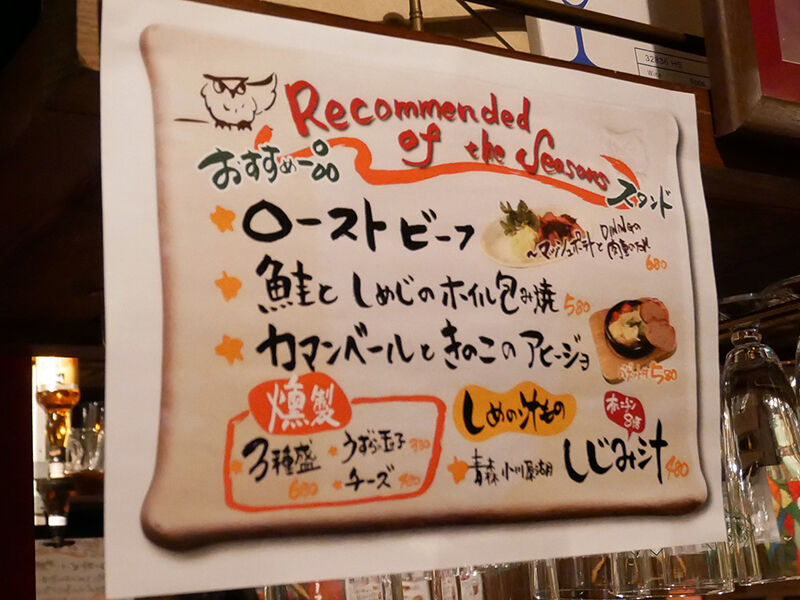 Recommended
of the Seasons
おすすめ一品
スタンド
ローストビーフ
〜マッシュポテトと DININGの肉重のたれ
680
鮭としめじのホイル包み焼 580
カマンベールときのこのアヒージョ
580
燻製
3種盛
680
うずら玉子
チーズ 480
しめの汁もの
青森 小川原湖 しじみ汁 480